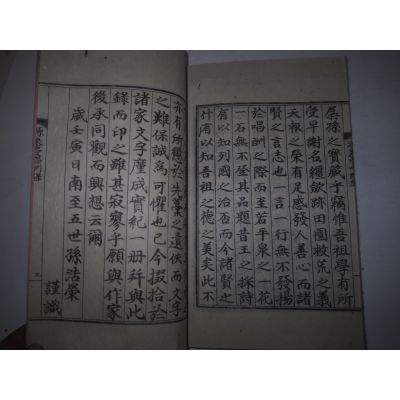 孱孫之寶藏乎竊惟吾祖學有所
受早謝名韁歛跡田園救荒之義
天報之榮有足感發人善心而諸
賢之言志也一言一行無不發揚
於唱酬之際而至若平泉之一花
一石無不至其品題昔王之採詩
有以知列國之治否而今諸賢之
什庸以知吾祖之德之美矣此不
亦有所憾於先藁之遺佚而文字
之難保誠爲可懼也已今掇拾於
諸家文字釐成實紀一册幷與此
錄而印之雖甚寂寥乎願與作家
後承同觀而興想云爾
歲壬寅日南至五世孫浩榮
謹識